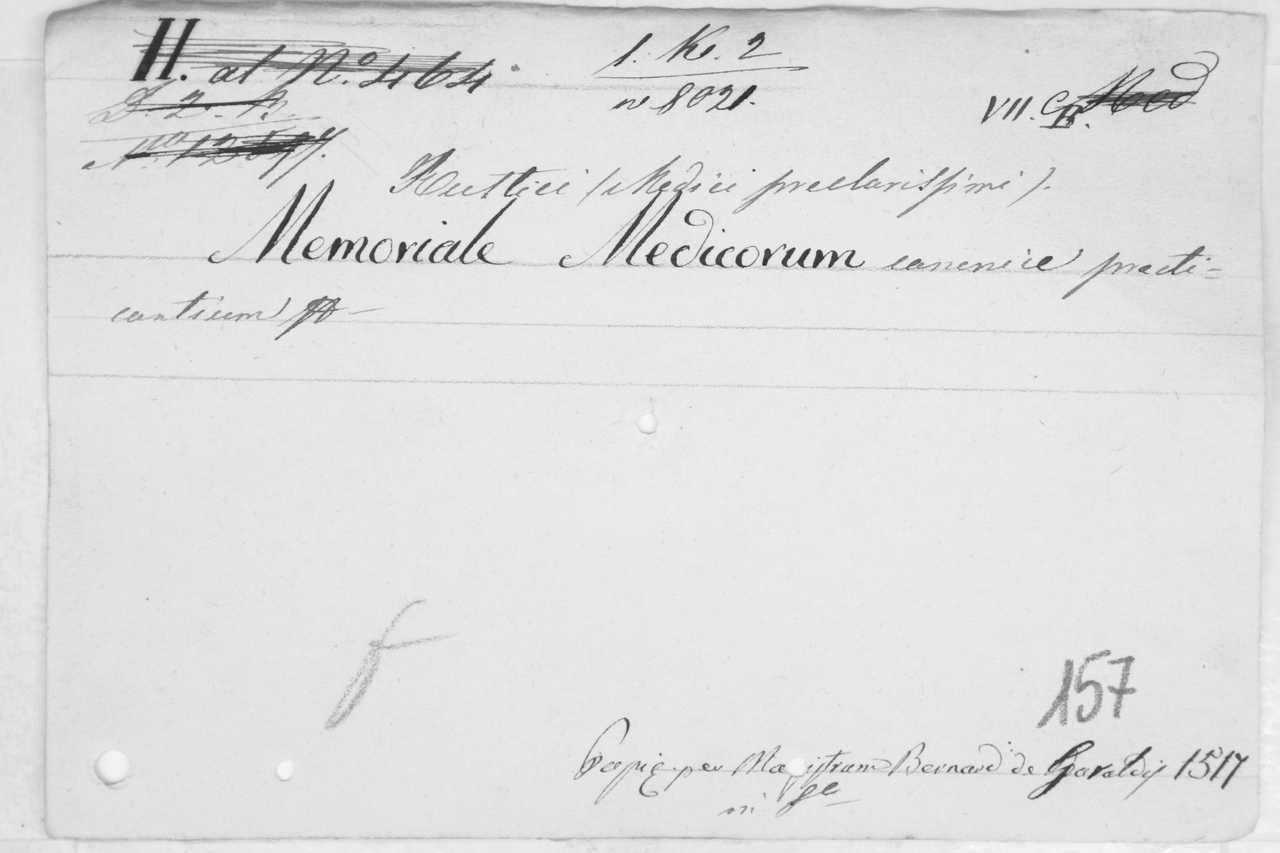 H. at No. 464
1. K. 2
n 8021.
VII. C.
D. 2. K.
Rustici (Medici preclarissimi).
Memoriale Medicorum canonice practi=
cantium
f
157
Papie per Magistrum Bernard de Garaldis 1517
in